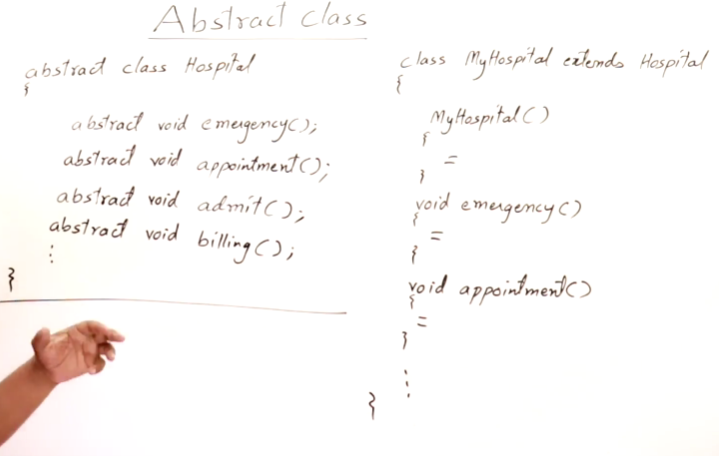 Abstract class
abstract class Hospital
{
abstract void emergency();
abstract void appointment();
abstract void admit();
abstract void billing();
⋮
}
class MyHospital extends Hospital
{
MyHospital()
{
=
}
void emergency()
{
=
}
void appointment()
{
=
}
⋮
}